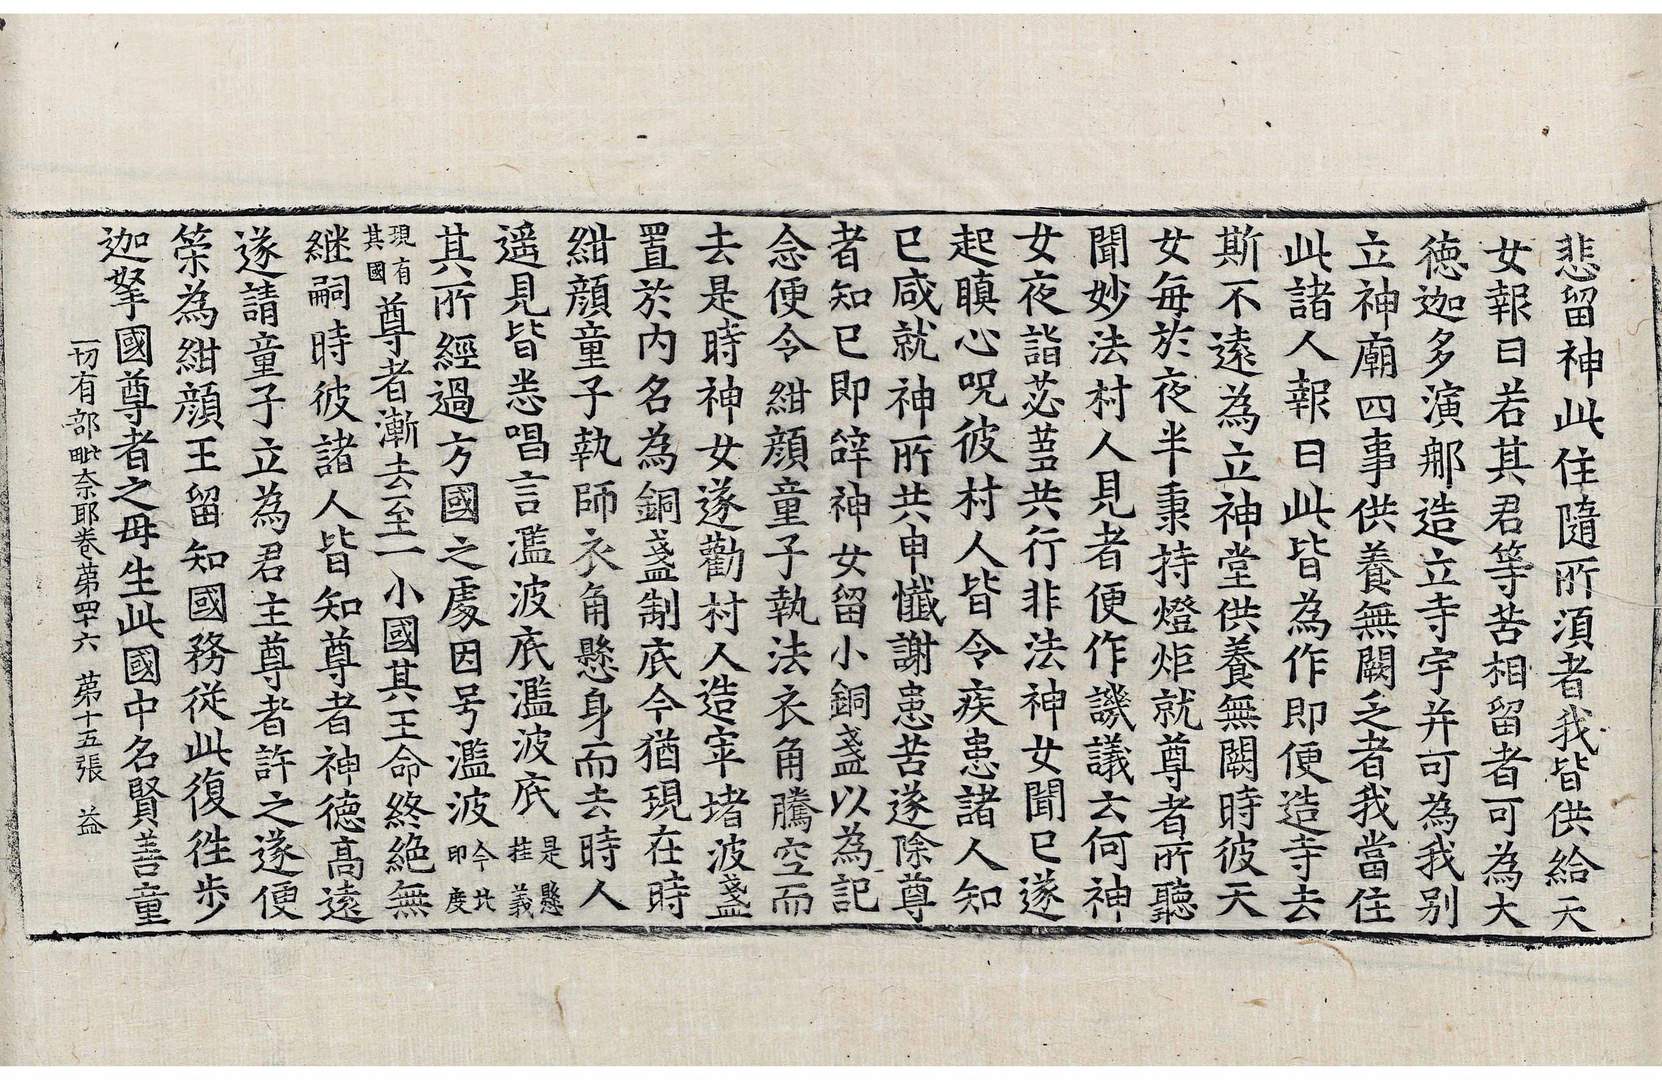 悲留神此住隨所須者我皆供給天
女報曰若其君等苦相留者可為大
徳迦多演那造立寺宇并可為我别
立神廟四事供養無闕乏者我當住
此諸人報曰此皆為作即便造寺去
斯不遠為立神堂供養無闕時彼天
女毎於夜半秉持燈炬就尊者所聽
聞妙法村人見者便作譏議云何神
女夜詣苾蒭共行非法神女聞已遂
起瞋心呪彼村人皆令疾患諸人知
已咸就神所共申懺謝患苦遂除尊
者知已即辝神女留小銅盞以為記
念便令紺顔童子執法衣角騰空而
去是時神女遂勸村人造窣堵波盞
置於内名為銅盞制底今猶現在時
紺顔童子執師衣角懸身而去時人
遥見皆悉唱言濫波底濫波底是懸挂義
其所經過方國之處因号濫波今北印度
現有其國尊者漸去至一小國其王命終絶無
継嗣時彼諸人皆知尊者神徳高遠
遂請童子立為君主尊者許之遂便
策為紺顔王留知國務從此復徃步
迦拏國尊者之毋生此國中名賢善童
一切有部毗奈耶卷苐四十六 苐十五張 益